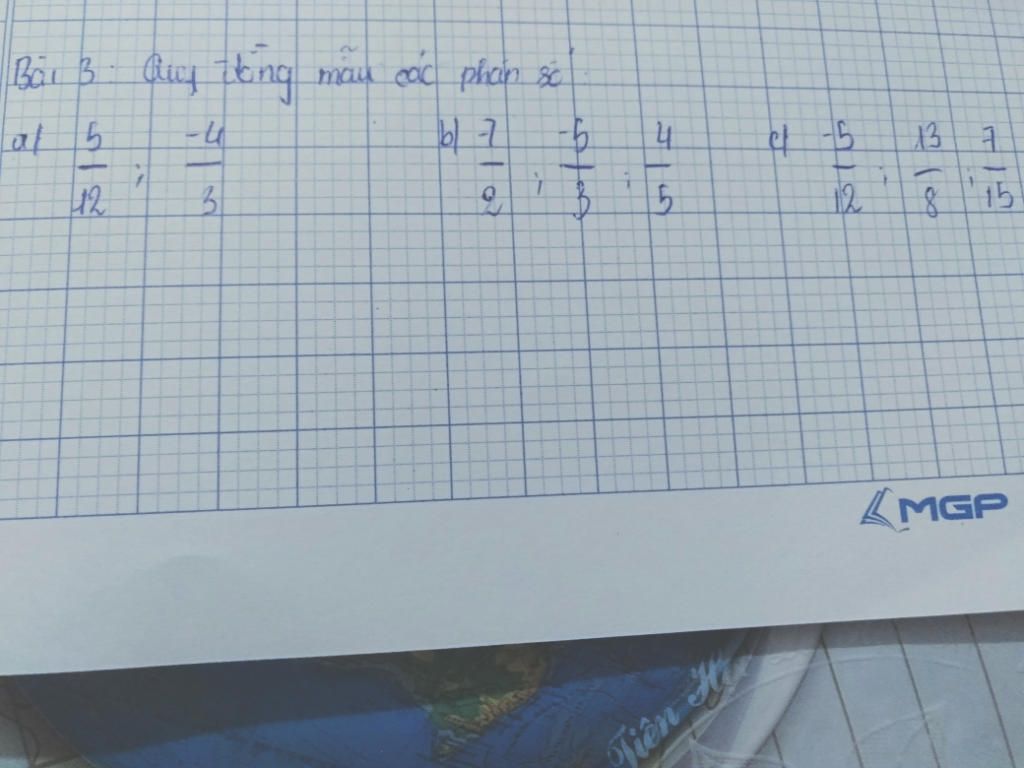 Bài 3: Quy đồng mẫu các phân số:
a) 5/12 ; -4/3 b) -7/2 ; -5/3 ; 4/5 c) -5/12 ; 13/8 ; 7/15
MGP